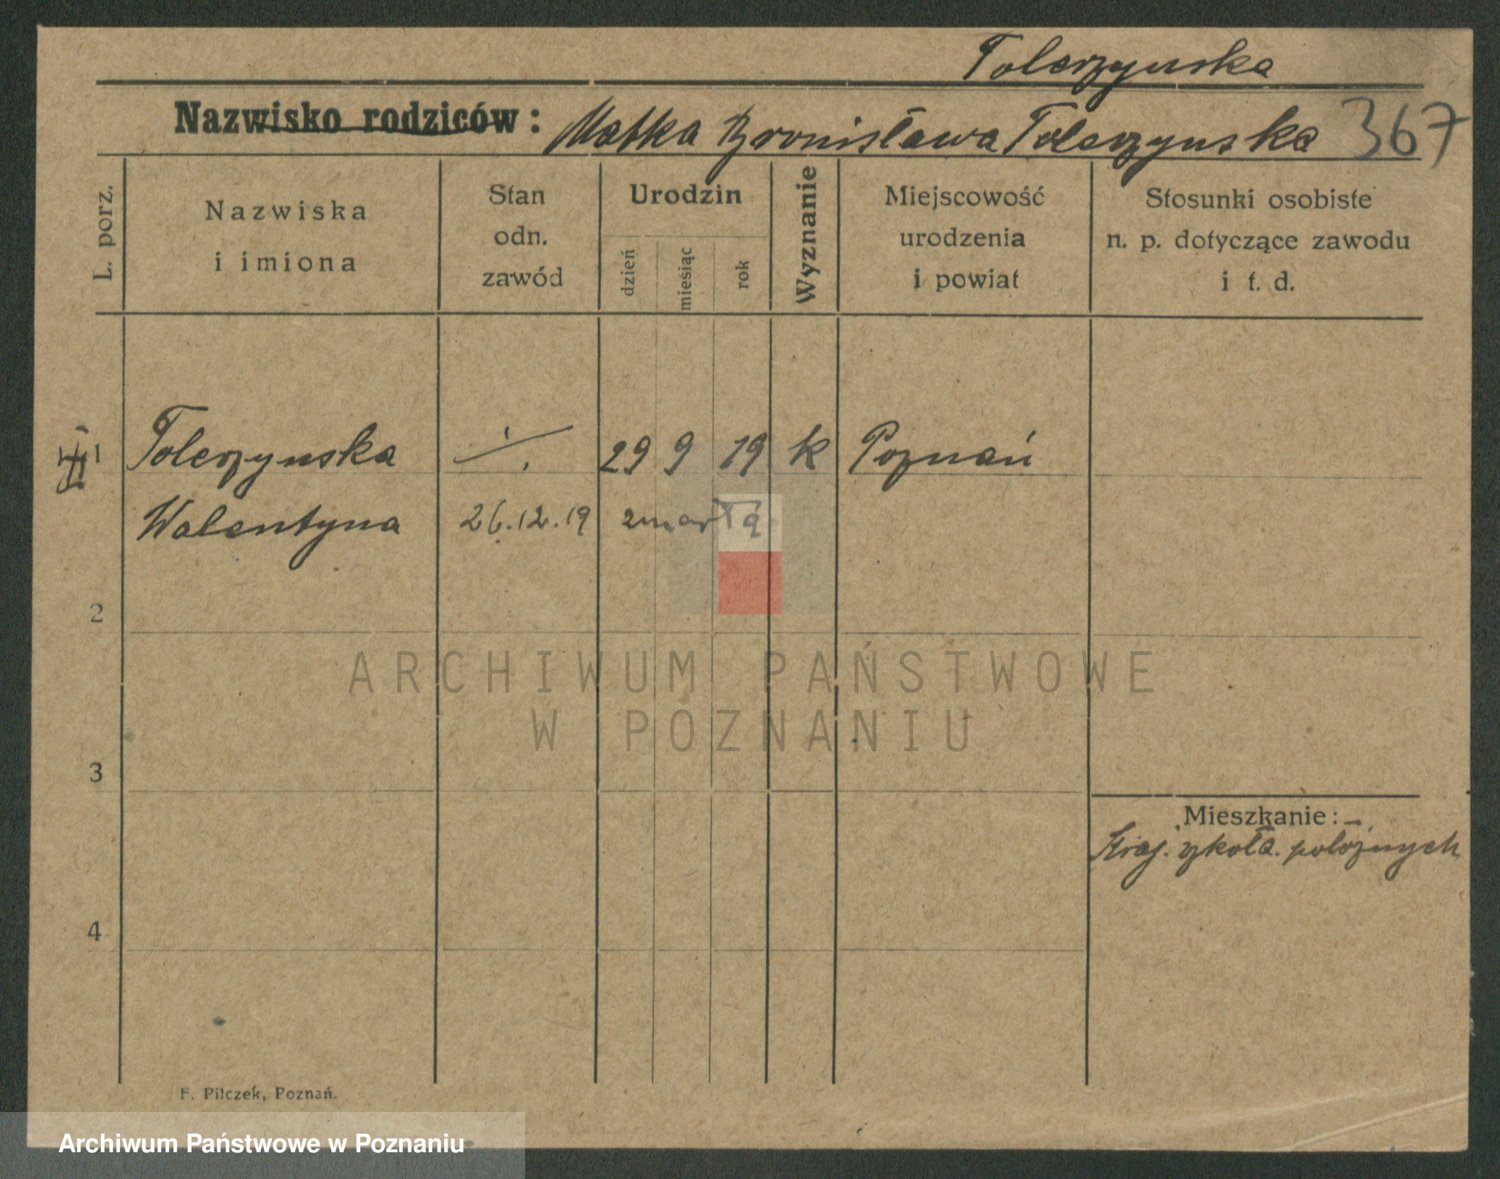 Tolerzynska
Nazwisko rodziców: Matka Bronisława Tolerzynska 367
L. porz.
Nazwiska i imiona
Stan odn. zawód
Urodzin
dzień
miesiąc
rok
Wyznanie
Miejscowość urodzenia i powiat
Stosunki osobiste n. p. dotyczące zawodu i t. d.
1 Tolerzynska ./. 29 9 19 k Poznań
Walentyna 26.12.19 zmarła
2
ARCHIWUM PAŃSTWOWE
W POZNANIU
3
Mieszkanie:
Kraj. szkoła. położnych
4
F. Pilczek, Poznań.
Archiwum Państwowe w Poznaniu